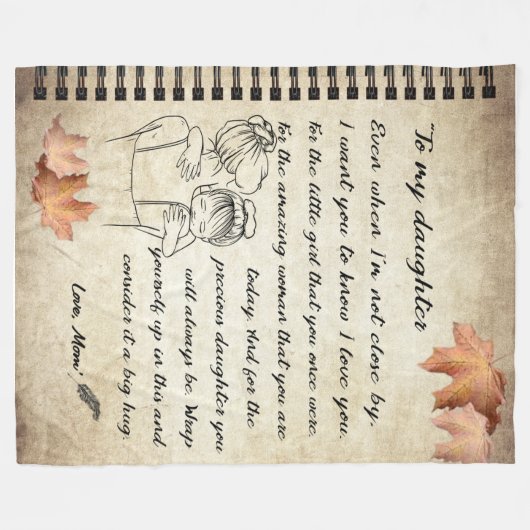 "To my daughter
Even when I'm not close by,
I want you to know I love you.
For the little girl that you once were,
For the amazing woman that you are
today. And for the
precious daughter you
will always be. Wrap
yourself up in this and
consider it a big hug.
Love, Mom,